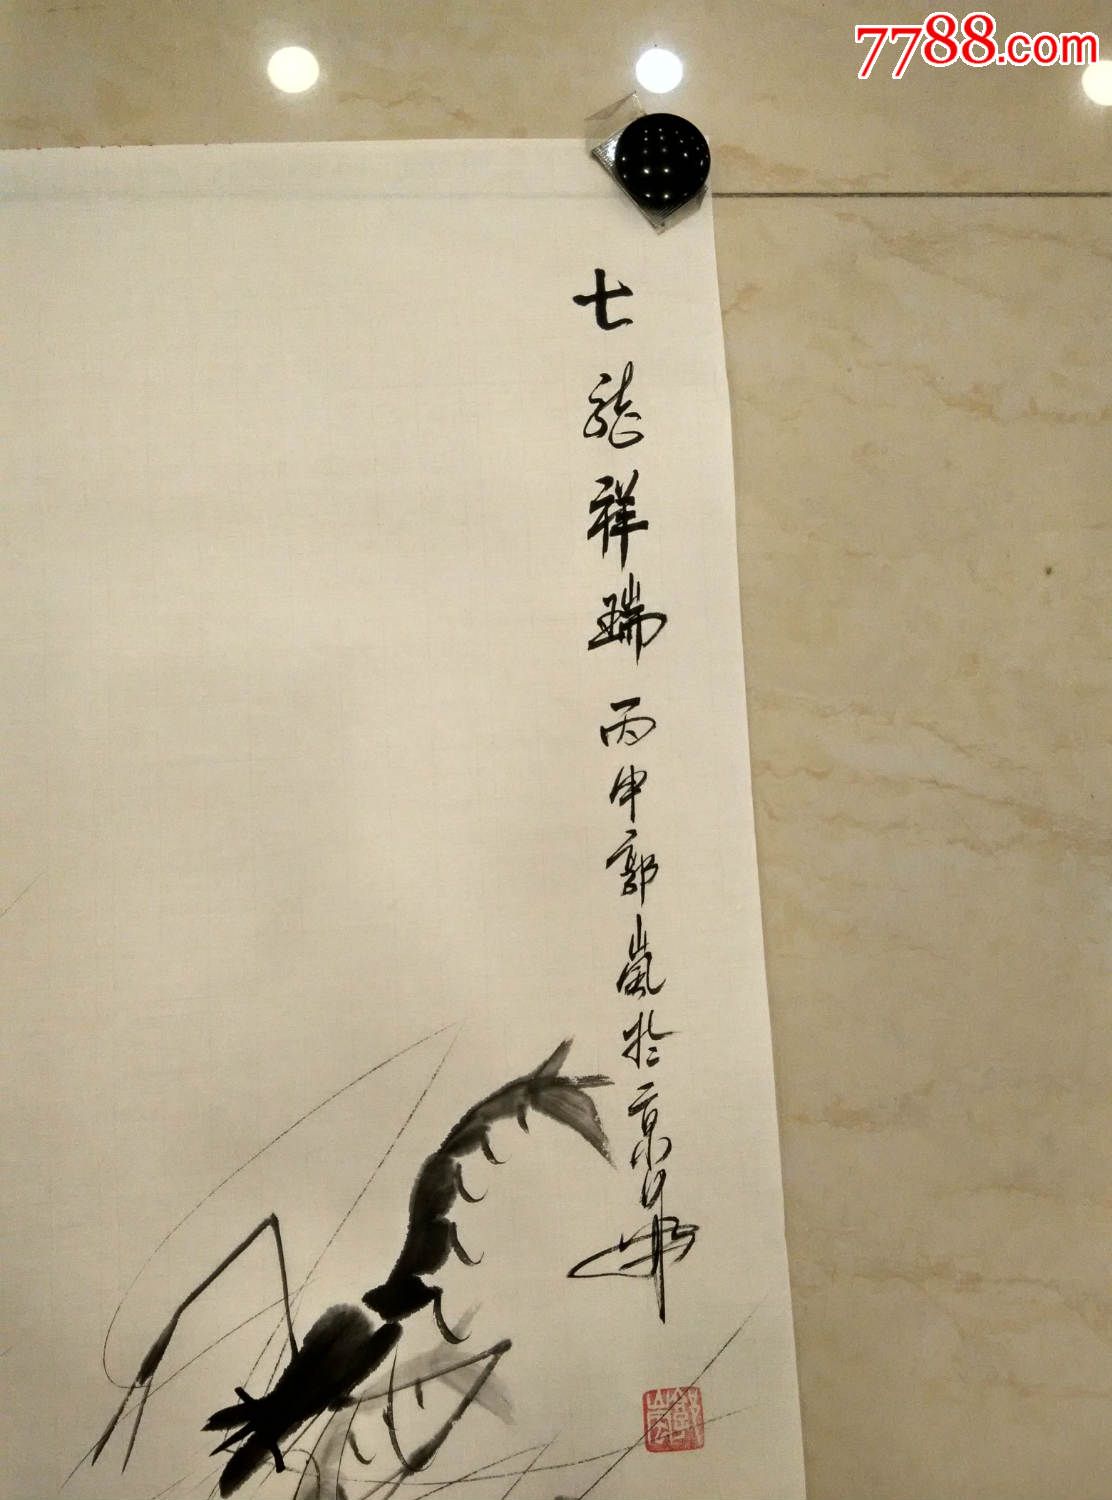 7788.com
七龙祥瑞 丙申郭嵐於京华